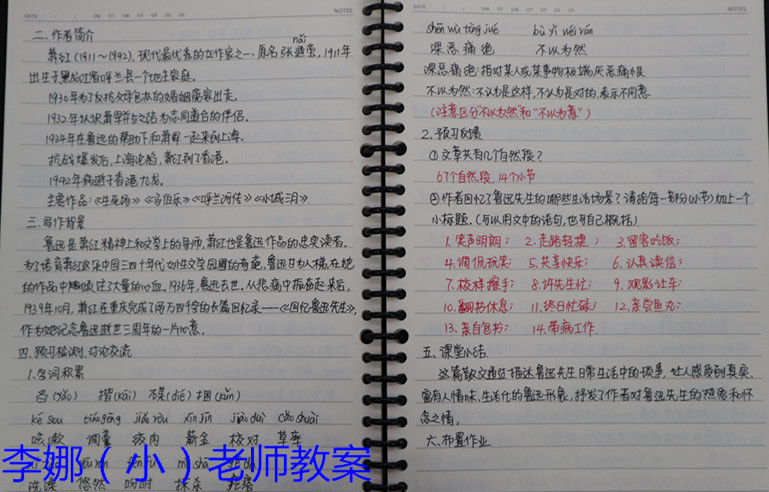 NOTES
二、作者简介
nǎi
萧红(1911～1942),现代最优秀的女作家之一,原名张廼莹,1911年
出生于黑龙江省呼兰县一个地主家庭。
1930年为了反抗父母包办的婚姻离家出走。
1932年认识萧军并与之结为志同道合的伴侣。
1934年在鲁迅的帮助下和萧军一起来到上海。
抗战爆发后,上海沦陷,萧红到了香港。
1942年病逝于香港九龙。
主要作品:《生死场》《马伯乐》《呼兰河传》《小城三月》
三、写作背景
鲁迅是萧红精神上和文学上的导师,萧红也是鲁迅作品的忠实读者。
的作品中倾注了大量的心血,1936年,鲁迅去世。从悲痛中振奋起来后,
1939年10月,萧红在重庆完成了两万四千字的长篇回忆录——《回忆鲁迅先生》,
作为她纪念鲁迅逝世三周年的一片心意。
四、预习检测,讨论交流
1.字词积累
舀(yǎo) 揩(kāi) 碟(dié) 捆(kǔn)
ké sou tiáo gēng jiǎo ròu xīn jīn jiào duì cǎo shuài
咳嗽 调羹 绞肉 薪金 校对 草率
悠然 吩咐 抹杀
NOTES
shēn wù tòng jué bù yǐ wéi rán
深恶痛绝 不以为然
深恶痛绝:指对某人或某事物极端厌恶痛恨
不以为然:不认为是这样,不认为是对的,表示不同意
(注意区分“不以为然”和“不以为意”)
2.预习反馈
①文章共有几个自然段?
67个自然段,14个小节
②作者回忆了鲁迅先生的哪些生活场景?请给每一部分(小节)加上一个
小标题。(可以用文中的语句,也可自己概括)
1.笑声明朗; 2.走路轻捷; 3.留客吃饭;
4.调侃玩笑; 5.共享快乐; 6.认真读信;
7.校样擦手; 8.许先生忙; 9.观影让车;
10.翻书休息; 11.终日忙碌; 12.亲尝鱼丸;
13.亲自包书; 14.带病工作.
五、课堂小结
这篇散文通过描述鲁迅先生日常生活中的琐事,让人感受到真实、
富有人情味,生活化的鲁迅形象,抒发了作者对鲁迅先生的想念和怀
念之情。
六、布置作业
李娜(小)老师教案